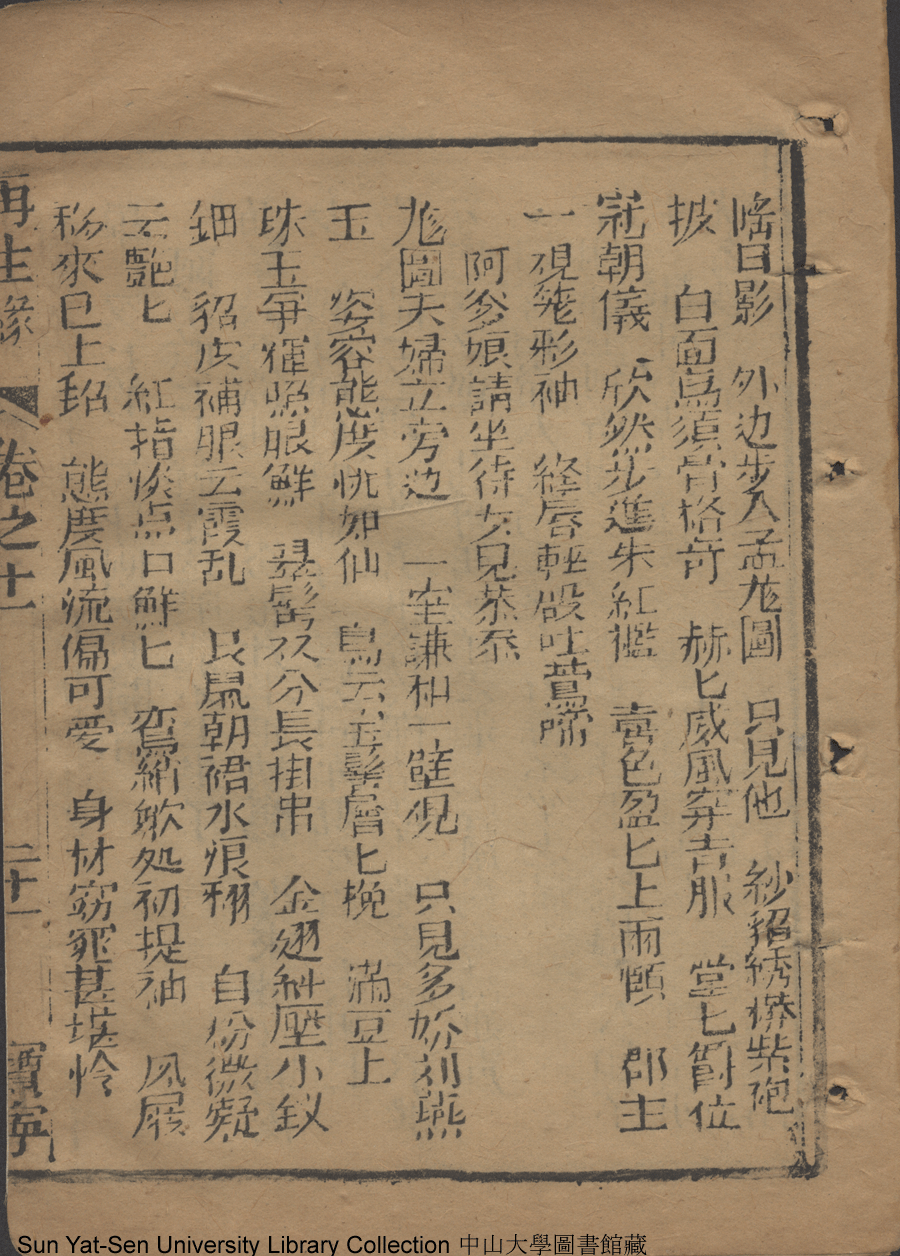 日影 外边步入孟尨圖 只見他 紗貂綉蟒紫砲
披 白面烏須骨格奇 赫匕威風穿吉服 堂匕爵位
冠朝儀 欣然步進朱紅檻 喜色盈匕上兩傾 郡主
一見篼彩袖 絳唇輕啟吐鶯啼
阿爹娘請坐待女兒恭叅
尨圖夫婦立旁边 一室謙和一壁覌 只見多妢刘燕
玉 姿容態度恍如仙 烏云宝髻層匕挽 滿豆上
珠玉爭輝照眼鮮 双分長掛串 金翅斜壓小釵
鈿 貂皮補服云霞乱 艮鼠朝裙水痕翙 自份微凝
云艷匕 紅指惔点口鮮匕 鸞綃䠶处初提袖 风展
移來已上貂 態度風流偏可愛 身材窈窕甚堪怜
再生緣 卷之十一 二十一 寶寧
Sun Yat-Sen University Library Collection 中山大學圖書館藏